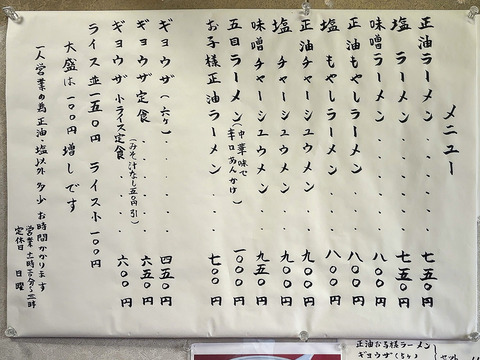 メニュー
正油ラーメン・・・七五〇円
塩 ラーメン・・・七五〇円
味噌ラーメン・・・八〇〇円
正油もやしラーメン・・八〇〇円
塩 もやしラーメン・・八〇〇円
正油チャーシュウメン・・九〇〇円
塩 チャーシュウメン・・九〇〇円
味噌チャーシュウメン・・九五〇円
五目ラーメン(中華味で辛口あんかけ)一〇〇〇円
お子様正油ラーメン・・七〇〇円
ギョウザ(六ケ)・・・・四五〇円
ギョウザ定食(みそ汁なし五〇円引)・・・六五〇円
ギョウザ小ライス定食・・・六〇〇円
ライス並一五〇円 ライス小一〇〇円
大盛は一〇〇円増しです
一人営業の為正油・塩以外多少お時間かかります
営業 十一時三〇分〜二時
定休日 日曜
正油お子様ラーメン
ギョウザ(5ヶ)
セット